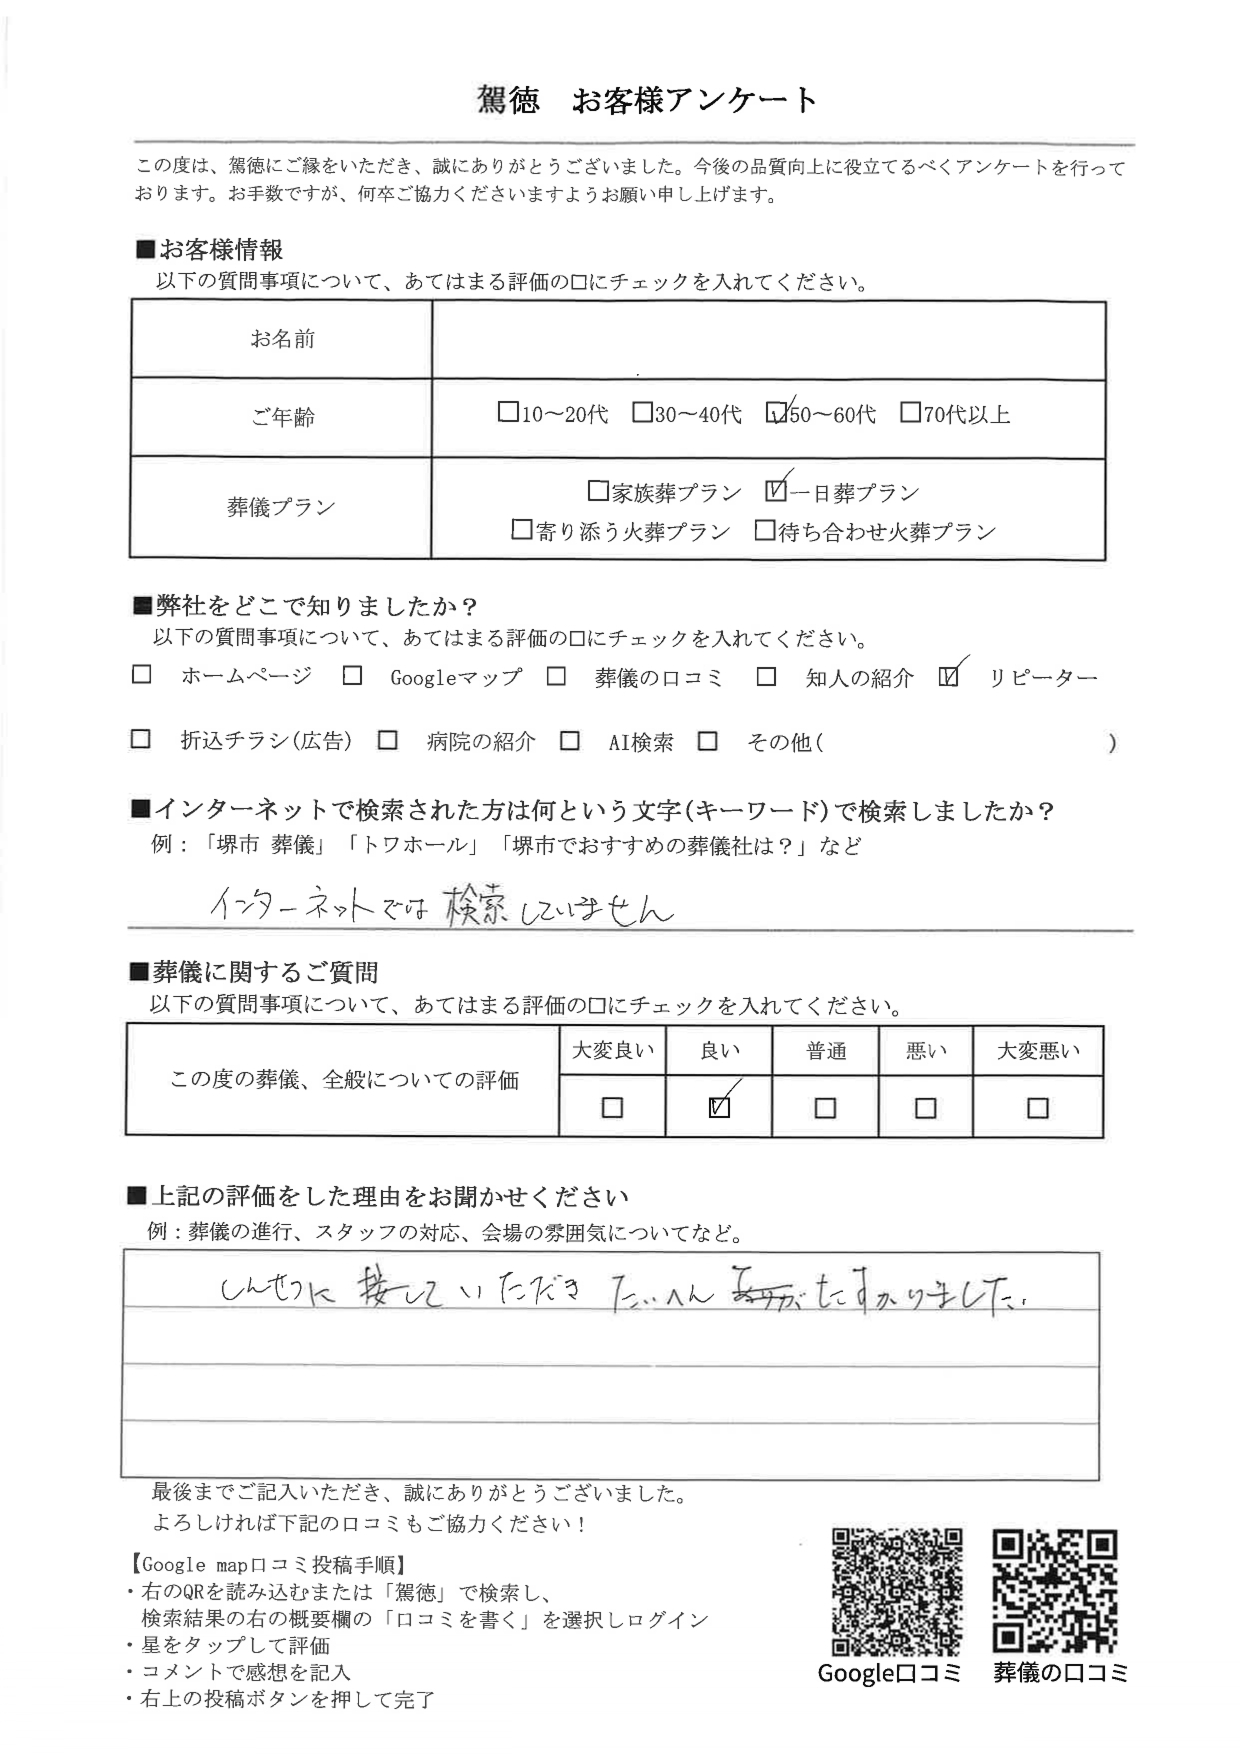 駕徳　お客様アンケート
この度は、駕徳にご縁をいただき、誠にありがとうございました。今後の品質向上に役立てるべくアンケートを行って
おります。お手数ですが、何卒ご協力くださいますようお願い申し上げます。
■お客様情報
以下の質問事項について、あてはまる評価の口にチェックを入れてください。
お名前
ご年齢
□10～20代 □30～40代 ☑50～60代 □70代以上
葬儀プラン
□家族葬プラン ☑一日葬プラン
□寄り添う火葬プラン □待ち合わせ火葬プラン
■弊社をどこで知りましたか？
以下の質問事項について、あてはまる評価の口にチェックを入れてください。
□ ホームページ □ Googleマップ □ 葬儀の口コミ □ 知人の紹介 ☑ リピーター
□ 折込チラシ(広告) □ 病院の紹介 □ AI検索 □ その他( )
■インターネットで検索された方は何という文字(キーワード)で検索しましたか？
例：「堺市 葬儀」「トワホール」「堺市でおすすめの葬儀社は？」など
インターネットでは検索していません
■葬儀に関するご質問
以下の質問事項について、あてはまる評価の口にチェックを入れてください。
この度の葬儀、全般についての評価
大変良い 良い 普通 悪い 大変悪い
□ ☑ □ □ □
■上記の評価をした理由をお聞かせください
例：葬儀の進行、スタッフの対応、会場の雰囲気についてなど。
しんせつに接していただき たいへん たすかりました。
最後までご記入いただき、誠にありがとうございました。
よろしければ下記の口コミもご協力ください！
【Google map口コミ投稿手順】
・右のQRを読み込むまたは「駕徳」で検索し、
検索結果の右の概要欄の「口コミを書く」を選択しログイン
・星をタップして評価
・コメントで感想を記入
・右上の投稿ボタンを押して完了
Google口コミ 葬儀の口コミ